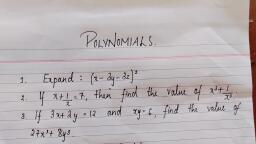 POLYNOMIALS.
1. Expand : (x - 2y - 3z)²
2. If x + 1/x = 7, then find the value of x³ + 1/x³.
3. If 3x + 2y = 12 and xy = 6, find the value of
27x³ + 8y³.